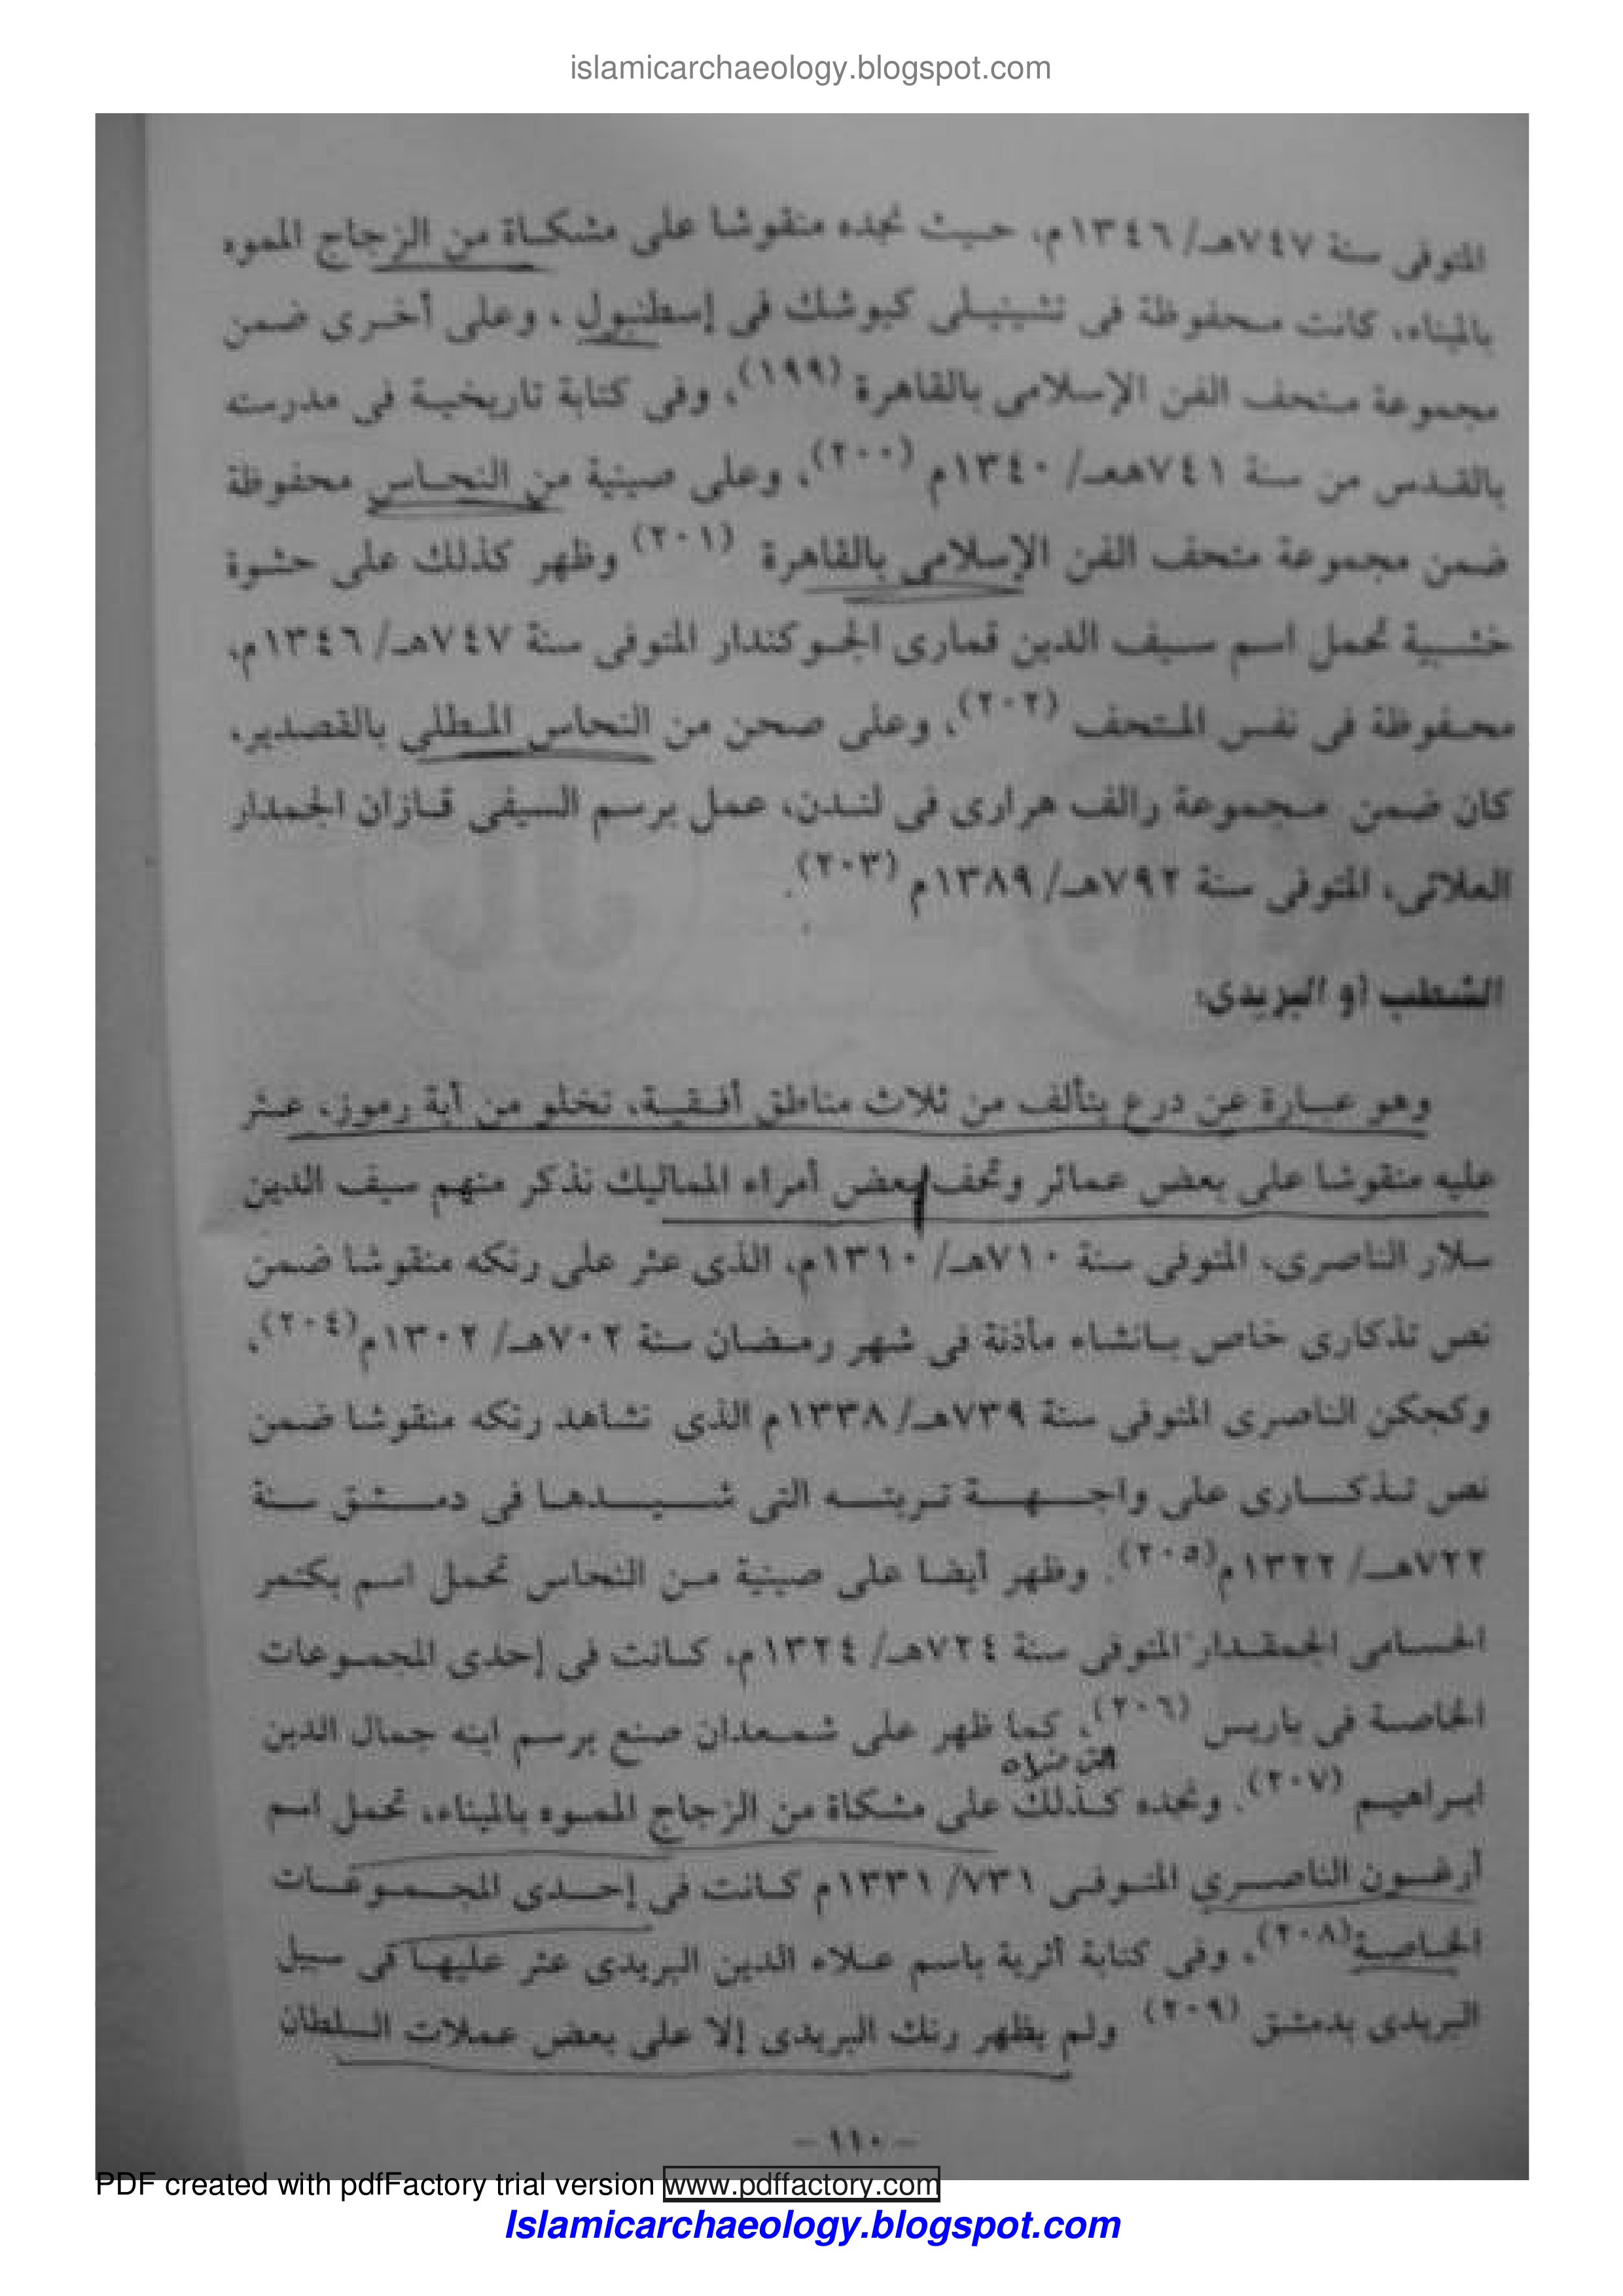 islamicarchaeology.blogspot.com
المتوفى سنة ٧٤٧هـ/ ١٣٤٦م، حيث نجده منقوشا على مشكاة من الزجاج المموه
بالميناء، كانت محفوظة فى تشينيلى كيوشك فى إسطنبول ، وعلى أخرى ضمن
مجموعة متحف الفن الإسلامى بالقاهرة (١٩٩)، وفى كتابة تاريخية فى مدرسته
بالقدس من سنة ٧٤١هـ/ ١٣٤٠م (٢٠٠)، وعلى صينية من النحاس محفوظة
ضمن مجموعة متحف الفن الإسلامى بالقاهرة (٢٠١) وظهر كذلك على حشوة
خشبية تحمل اسم سيف الدين قمارى الجوكندار المتوفى سنة ٧٤٧هـ/ ١٣٤٦م،
محفوظة فى نفس المتحف (٢٠٢)، وعلى صحن من النحاس المطلى بالقصدير،
كان ضمن مجموعة رالف هرارى فى لندن، عمل برسم السيفى قازان الجمدار
العلائى، المتوفى سنة ٧٩٢هـ/ ١٣٨٩م (٢٠٣).
الشطب أو البريدى:
وهو عبارة عن درع يتألف من ثلاث مناطق أفقية، تخلو من أية رموز، عثر
عليه منقوشا على بعض عمائر وتحف بعض أمراء المماليك نذكر منهم سيف الدين
سلار الناصرى، المتوفى سنة ٧١٠هـ/ ١٣١٠م، الذى عثر على رنكه منقوشا ضمن
نص تذكارى خاص بانشاء مأذنة فى شهر رمضان سنة ٧٠٢هـ/ ١٣٠٢م(٢٠٤)،
وكجكن الناصرى المتوفى سنة ٧٣٩هـ/ ١٣٣٨م الذى نشاهد رنكه منقوشا ضمن
نص تذكارى على واجهة تربته التى شيدها فى دمشق سنة
٧٢٢هـ/ ١٣٢٢م(٢٠٥). وظهر أيضا على صينية من النحاس تحمل اسم بكتمر
الحسامى الجمقدار المتوفى سنة ٧٢٤هـ/ ١٣٢٤م، كانت فى إحدى المجموعات
الخاصة فى باريس (٢٠٦)، كما ظهر على شمعدان صنع برسم ابنه جمال الدين
ابراهيم (٢٠٧). ونجده كذلك على مشكاة من الزجاج المموه بالميناء، تحمل اسم
أرغون الناصرى المتوفى ٧٣١/ ١٣٣١م كانت فى إحدى المجموعات
الخاصة(٢٠٨)، وفى كتابة أثرية باسم علاء الدين البريدى عثر عليها فى سبيل
البريدى بدمشق (٢٠٩) ولم يظهر رنك البريدى إلا على بعض عملات السلطان
- ١١٠ -
PDF created with pdfFactory trial version www.pdffactory.com
Islamicarchaeology.blogspot.com